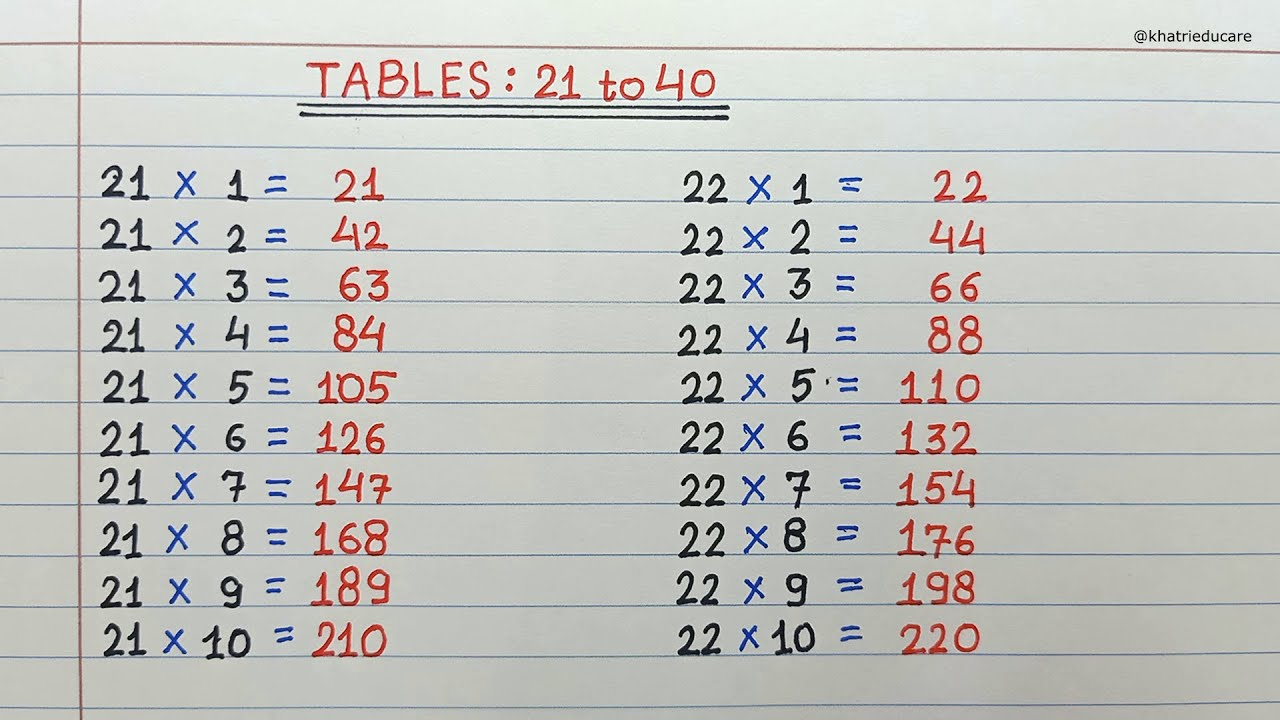 @khatrieducare
TABLES: 21 to 40
21 × 1 = 21
21 × 2 = 42
21 × 3 = 63
21 × 4 = 84
21 × 5 = 105
21 × 6 = 126
21 × 7 = 147
21 × 8 = 168
21 × 9 = 189
21 × 10 = 210
22 × 1 = 22
22 × 2 = 44
22 × 3 = 66
22 × 4 = 88
22 × 5 = 110
22 × 6 = 132
22 × 7 = 154
22 × 8 = 176
22 × 9 = 198
22 × 10 = 220